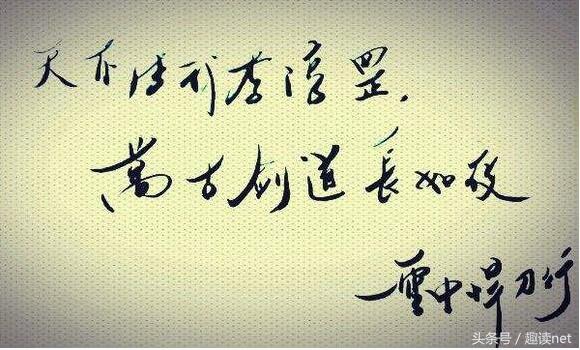 天不李淳罡，
萬古剑道長如夜
雪中悍刀行
头条号 / 趣读net